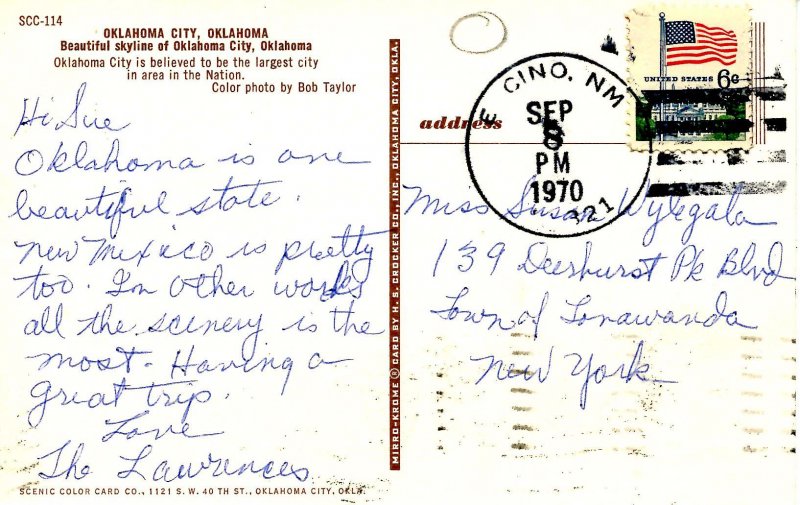 SCC-114
OKLAHOMA CITY, OKLAHOMA
Beautiful skyline of Oklahoma City, Oklahoma
Oklahoma City is believed to be the largest city
in area in the Nation.
Color photo by Bob Taylor
Hi Sue
Oklahoma is one
beautiful state.
New Mexico is pretty
too. In other words
all the scenery is the
most. Having a
great trip.
Love
The Lawrences
SCENIC COLOR CARD CO., 1121 S. W. 40 TH ST., OKLAHOMA CITY, OKLA.
MIRRO-KROME ® CARD BY H. S. CROCKER CO., INC., OKLAHOMA CITY, OKLA.
address
CINO, NM
SEP
PM
1970
321
UNITED STATES 6c
Miss Susan Wylegala
139 Deerhurst Pk Blvd
Town of Tonawanda
New York